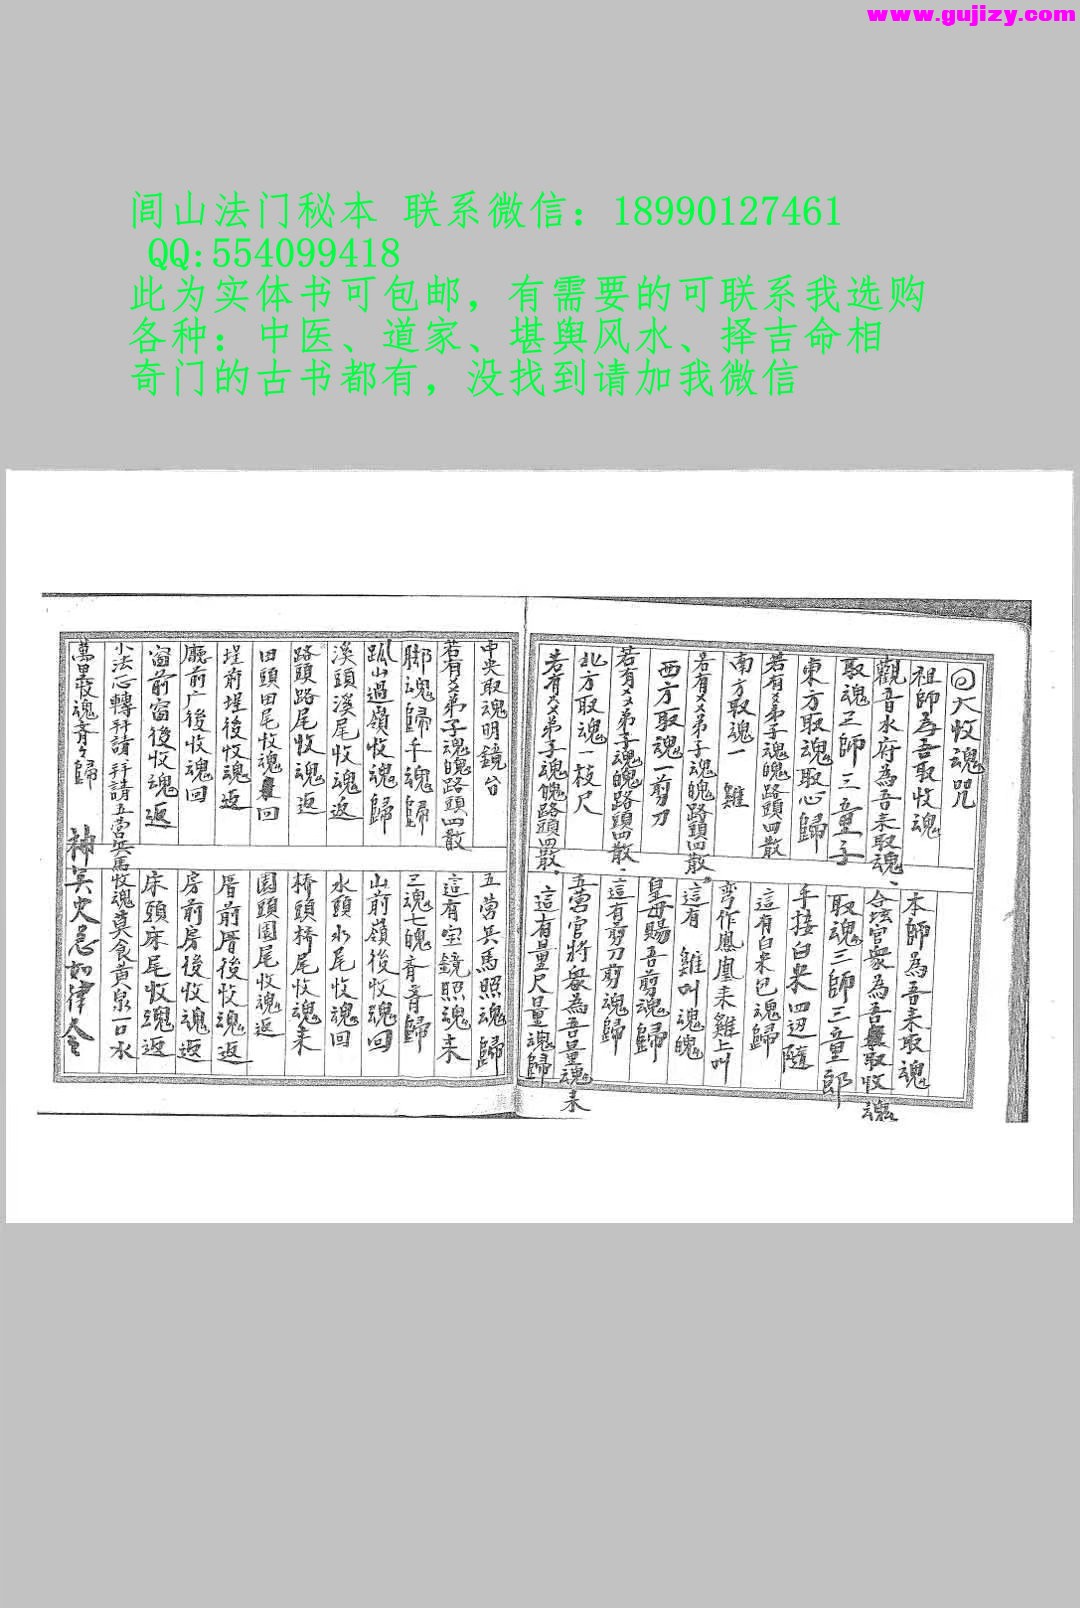 www.gujizy.com
闾山法门秘本 联系微信：18990127461
QQ:554099418
此为实体书可包邮，有需要的可联系我选购
各种：中医、道家、堪舆风水、择吉命相
奇门的古书都有，没找到请加我微信
大收魂咒
祖師為吾取收魂 本師為吾来取魂
觀音水府為吾来取魂、合坛官衆為吾取收魂
取魂三師三童子 取魂三師三童郎
東方取魂取心歸 手接白米四边隨
若有××弟子魂魄路頭四散 這有白米包魂歸
南方取魂一 雞 弯作鳳凰来雞上叫
若有××弟子魂魄路頭四散。這有 雞叫魂魄
西方取魂一剪刀 皇母賜吾剪魂歸
若有××弟子魂魄路頭四散、這有剪刀剪魂歸
北方取魂一枝尺 五营官將衆為吾量魂来
若有××弟子魂魄路頭四散、這有量尺量魂歸
中央取魂明鏡台 五营兵馬照魂歸
若有××弟子魂魄路頭四散 這有宝鏡照魂来
脚魂歸手魂歸 三魂七魄齊齊歸
跐山過嶺收魂歸 山前嶺後收魂回
溪頭溪尾收魂返 水頭水尾收魂回
路頭路尾收魂返 橋頭橋尾收魂来
田頭田尾收魂回 園頭園尾收魂返
埕前埕後收魂返 厝前厝後收魂返
廳前厅後收魂回 房前房後收魂返
窗前窗後收魂返 床頭床尾收魂返
小法心轉拜請拜請五营兵馬收魂莫食黄泉一口水
萬里收魂齊々歸 神兵火急如律令